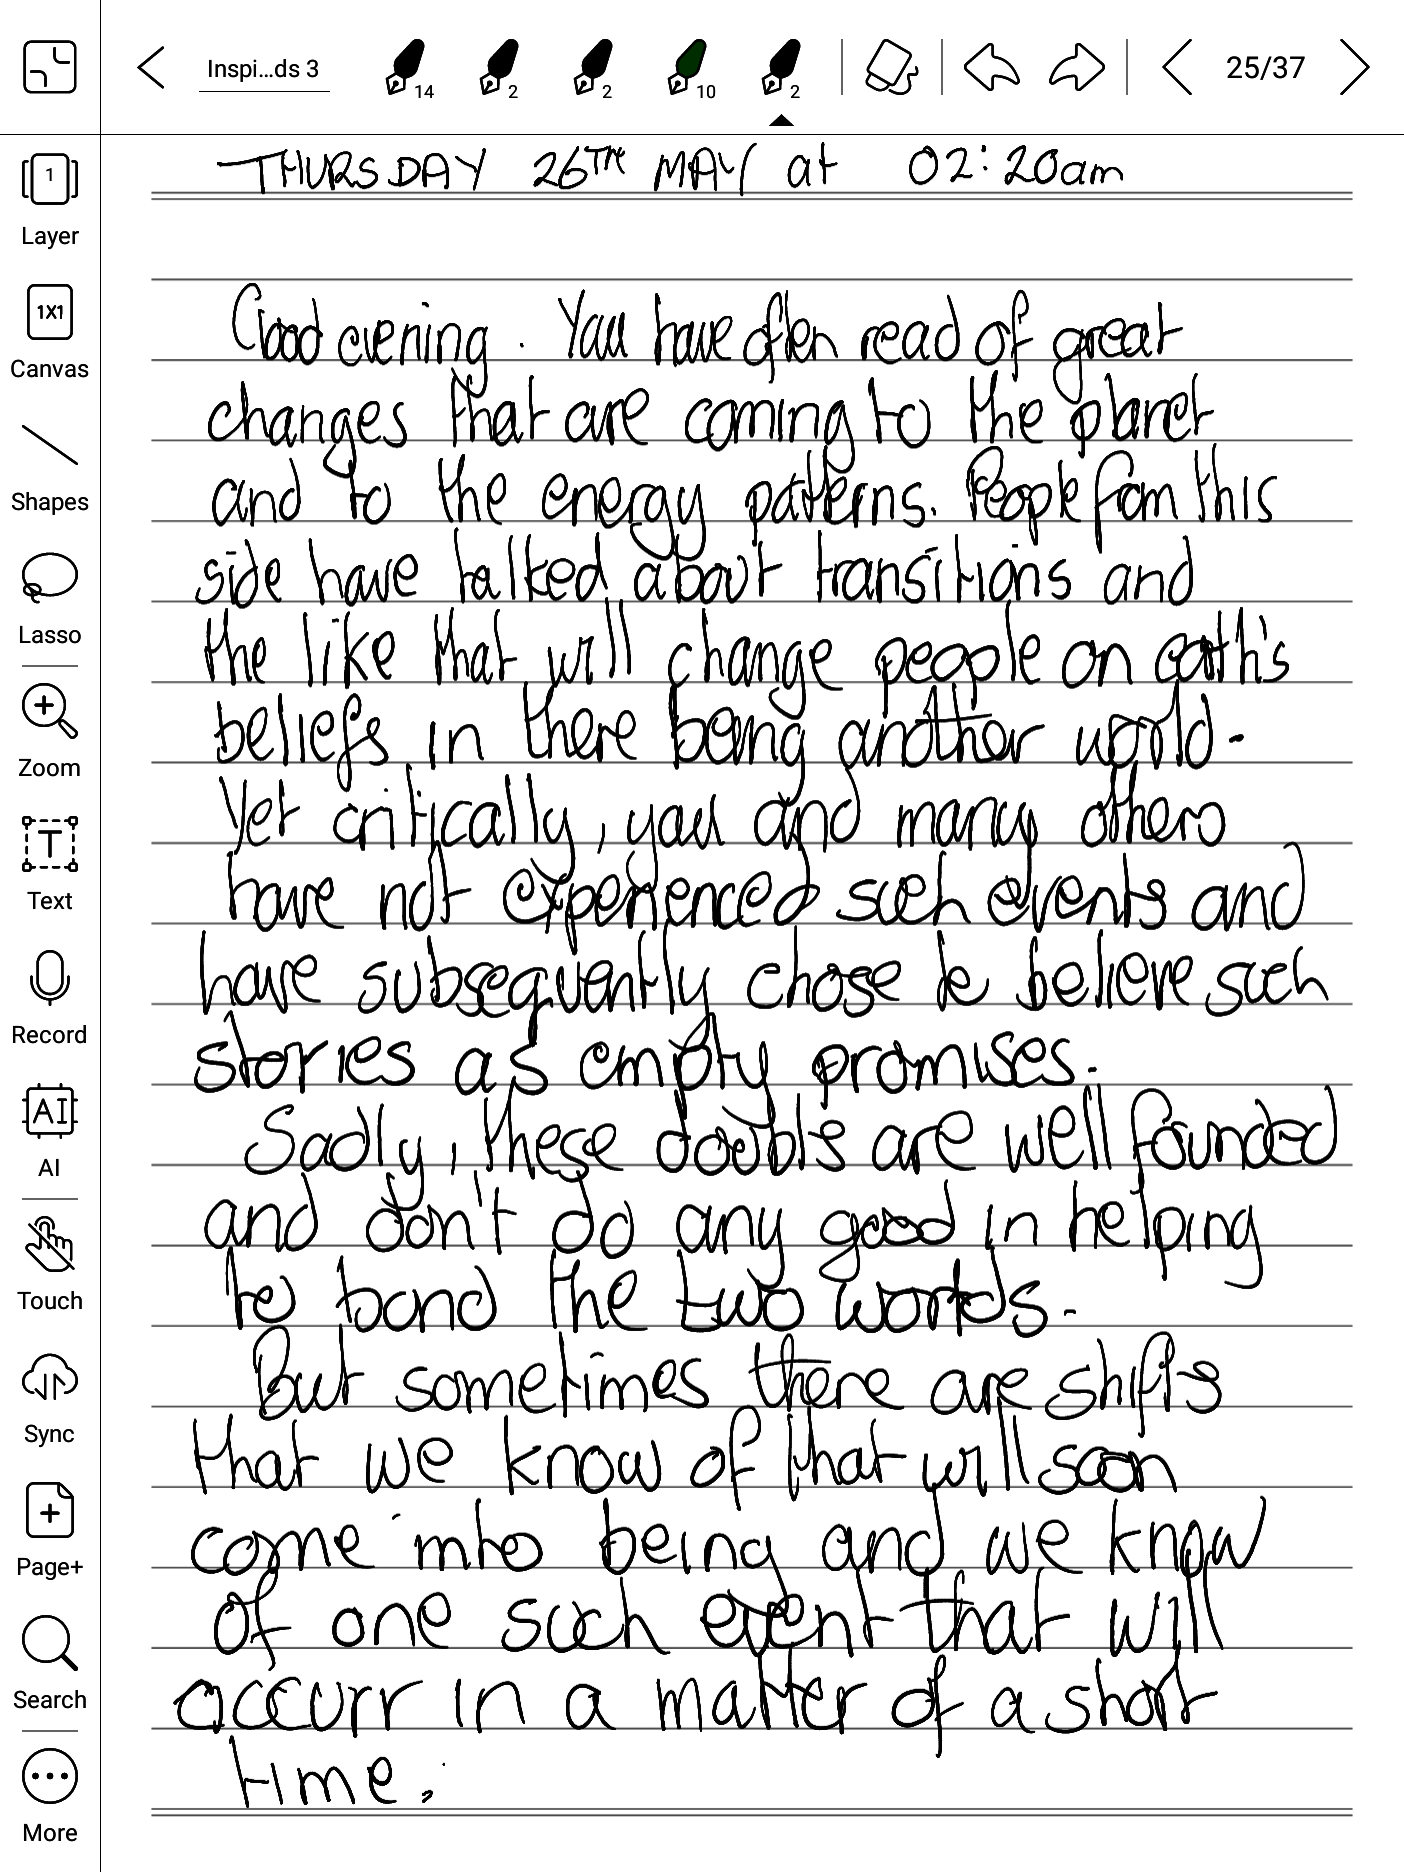 Inspi...ds 3
14
2
2
10
2
25/37
1
Layer
1X1
Canvas
Shapes
Lasso
Zoom
T
Text
Record
AI
AI
Touch
Sync
Page+
Search
More
THURSDAY 26TH MAY at 02:20am
Good evening. You have often read of great
changes that are coming to the planet
and to the energy patterns. People from this
side have talked about transitions and
the like that will change people on earth's
beliefs in there being another world.
Yet critically, you and many others
have not experienced such events and
have subsequently chose to believe such
stories as empty promises.
Sadly, these doubts are well founded
and don't do any good in helping
to bond the two worlds.
But sometimes there are shifts
that we know of that will soon
come into being and we know
of one such event that will
occurr in a matter of a short
time.